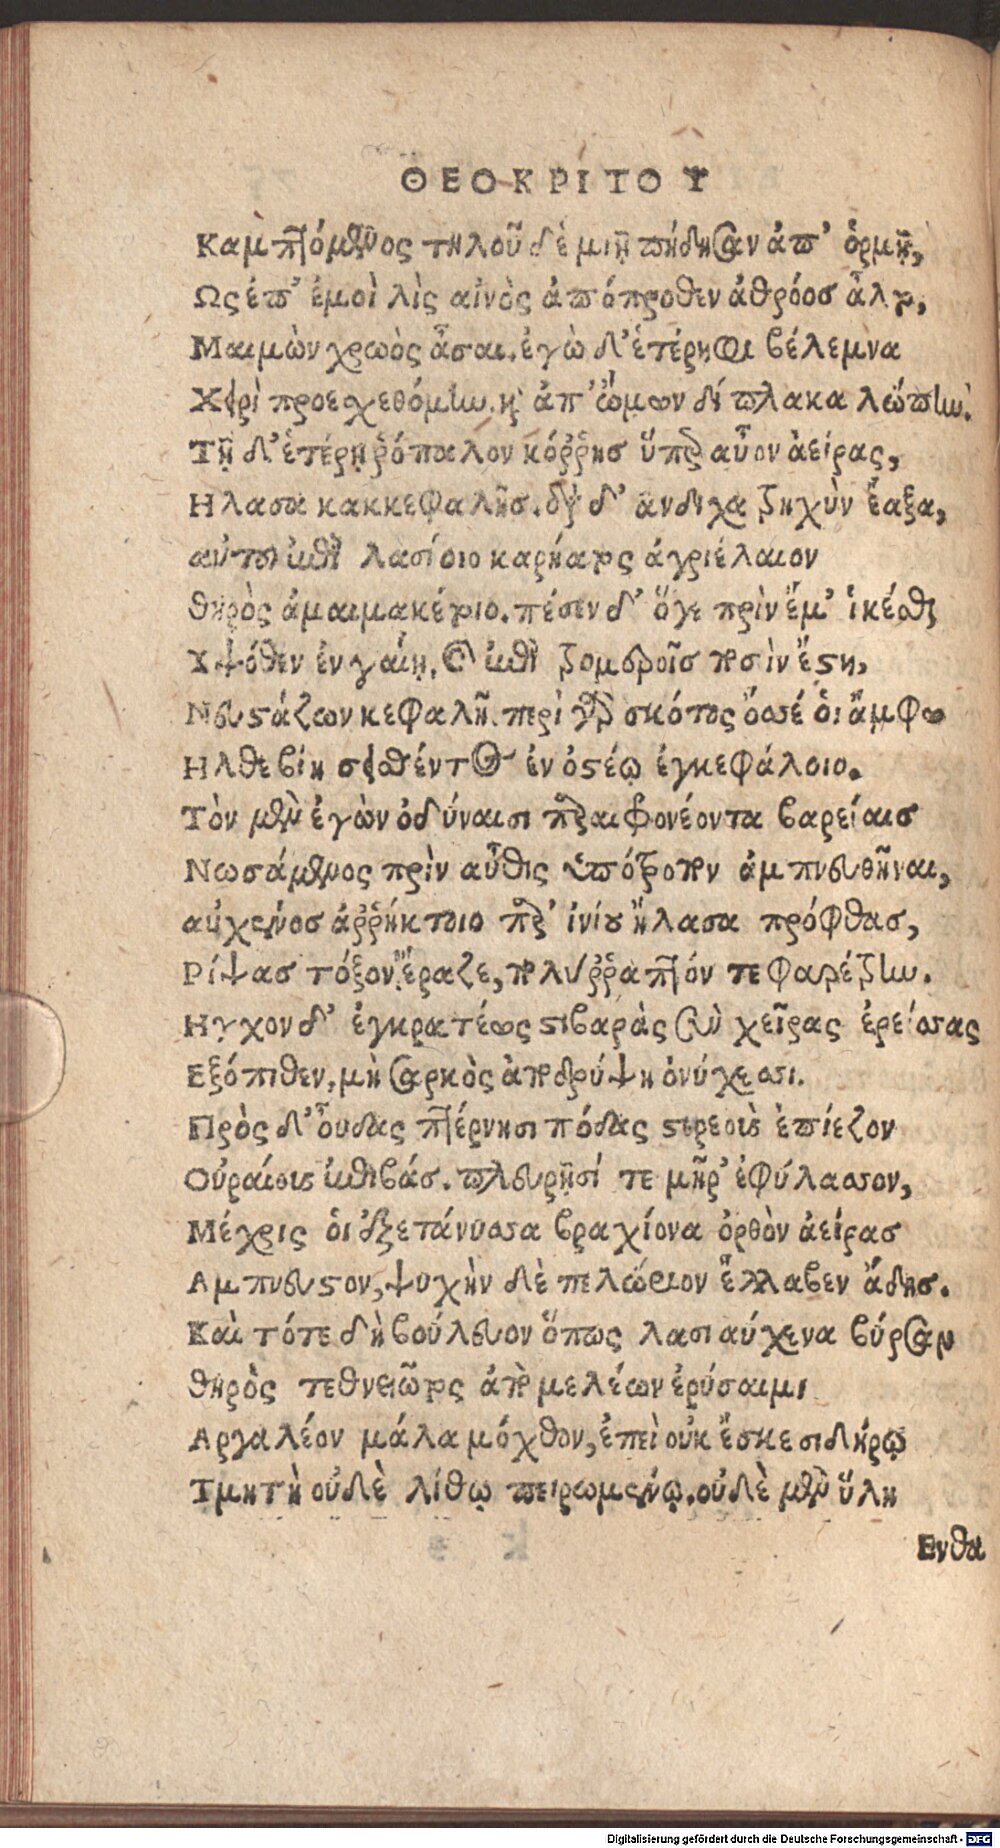 ΘΕΟΚΡΙΤΟΥ
Καμπτόμενος τηλοῦ δὲ μιῇ πήδησαν ἀπ' ὁρμῇ,
Ὣς ἐπ' ἐμοὶ λὶς αἰνὸς ἀπόπροθεν ἀθρόος ἆλτο,
Μαιμὼν χροὸς ἆσαι. ἐγὼ δ' ἑτέρηφι βέλεμνα
Χειρὶ προεχεθόμην. καὶ ἀπ' ὤμων δίπλακα λώπην.
Τῇ δ' ἑτέρῃ ῥόπαλον κόῤῥης ὕπερ αὖον ἀείρας,
Ηλασα κακκεφαλῆς. διὰ δ' ἄνδιχα τρηχὺν ἔαξα,
αὐτοῦ ἐπὶ λασίοιο καρήατος ἀγριέλαιον
θηρὸς ἀμαιμακέτοιο. πέσεν δ' ὅγε πρὶν ἔμ' ἱκέσθαι
Υψόθεν ἐν γαίῃ, καὶ ἐπὶ τρομεροῖς ποσὶν ἔστη,
Νευστάζων κεφαλῇ. περὶ γὰρ σκότος ὄσσέ ὁι ἄμφω
Ηλθε βίῃ σεισθέντος ἐν ὀστέῳ ἐγκεφάλοιο.
Τὸν μὲν ἐγὼν ὀδύναισι παραιφρονέοντα βαρείαις
Νωσάμενος πρὶν αὖθις ὑπότροπον ἀμπνευθῆναι,
αὐχένος ἀῤῥήκτοιο παρ' ἰνίου ἤλασα πρόφθας,
Ρίψας τόξον ἔραζε, πολύῤῥαπτόν τε φαρέτρην.
Ηγχον δ' ἐγκρατέως στιβαρὰς σὺν χεῖρας ἐρείσας
Εξόπιθεν, μὴ σαρκὸς ἀποδρύψῃ ὀνύχεσσι.
Πρὸς δ' οὖδας πτέρνῃσι πόδας στερεοὺς ἐπίεζον
Οὐραίους ἐπιβάς. πλευρῇσί τε μῆρ' ἐφύλασσον,
Μέχρις ὁι ἐξετάνυσσα βραχίονα ὀρθὸν ἀείρας
Αμπνευστον, ψυχὴν δὲ πελώριον ἔλλαβεν ἅδης.
Καὶ τότε δὴ βούλευον ὅπως λασιαύχενα βύρσαν
θηρὸς τεθνειῶτος ἀπὸ μελέων ἐρύσαιμι
Αργαλέον μάλα μόχθον, ἐπεὶ οὐκ ἔσκε σιδήρῳ
Τμητὴ οὐδὲ λίθῳ πειρωμένῳ. οὐδὲ μὲν ὕλῃ
Ενθα
Digitalisierung gefördert durch die Deutsche Forschungsgemeinschaft - DFG